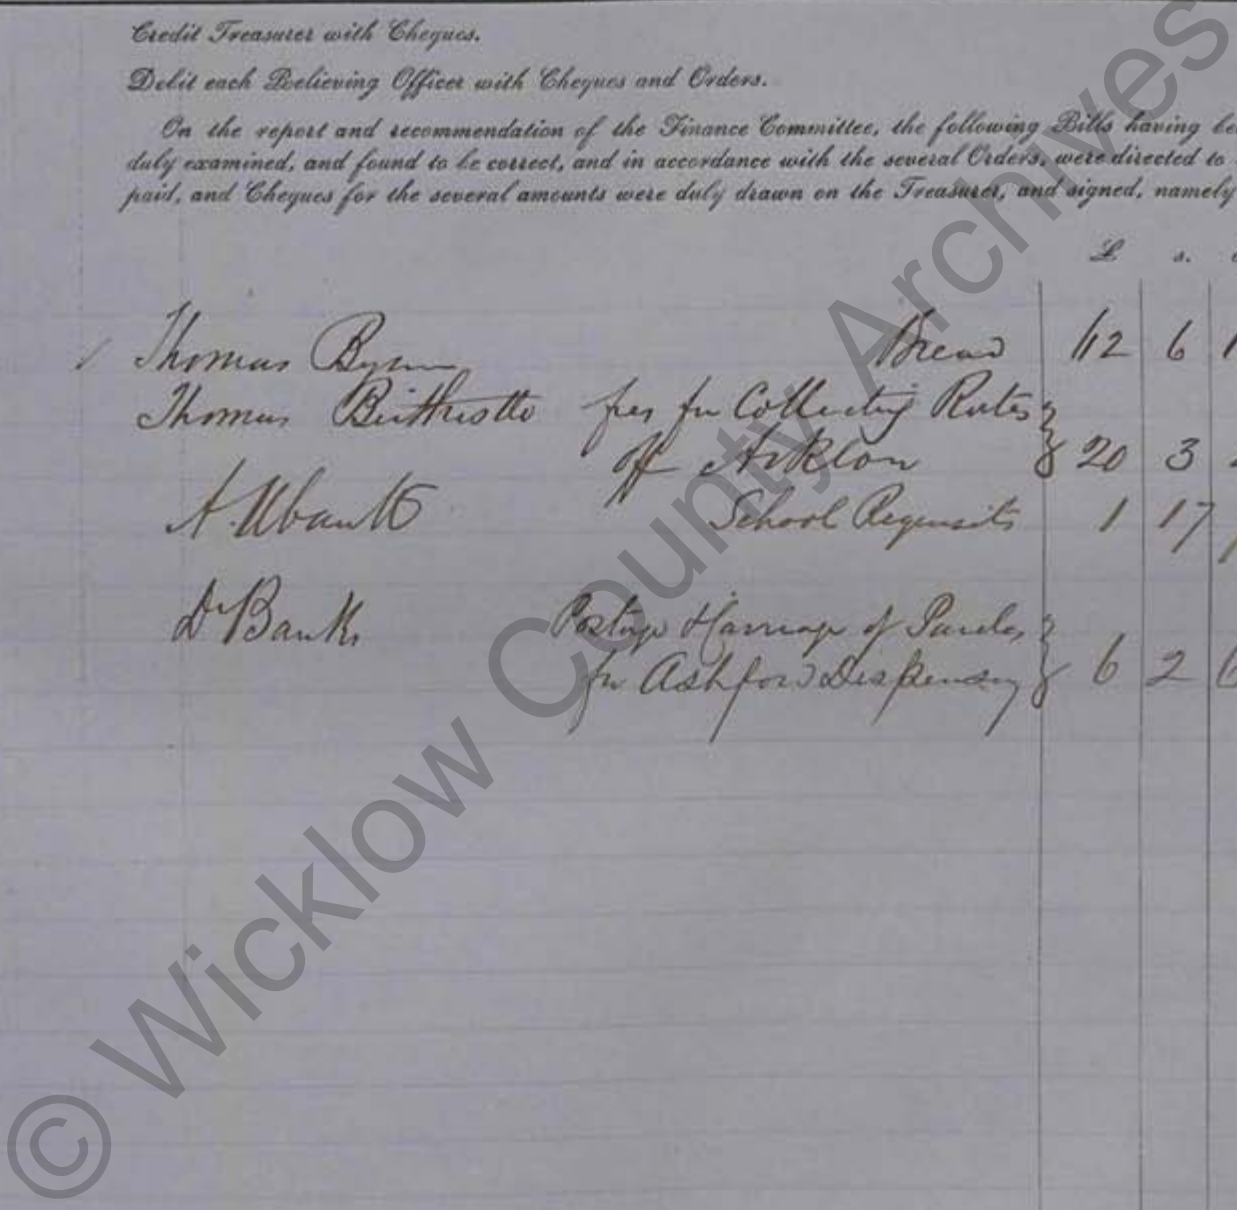 Credit Treasurer with Cheques.
Debit each Relieving Officer with Cheques and Orders.
On the report and recommendation of the Finance Committee, the following Bills having be
duly examined, and found to be correct, and in accordance with the several Orders, were directed to
paid, and Cheques for the several amounts were duly drawn on the Treasurer, and signed, namely
£ s.
Thomas Byrne Bread 112 6
Thomas fees for Collecting Rates
off Arklow 20 3
School Requisits 1 17
Dr Banks Postage & Carriage of Parcels
for Ashford Dispensary 6 2 6
© Wicklow County Archives